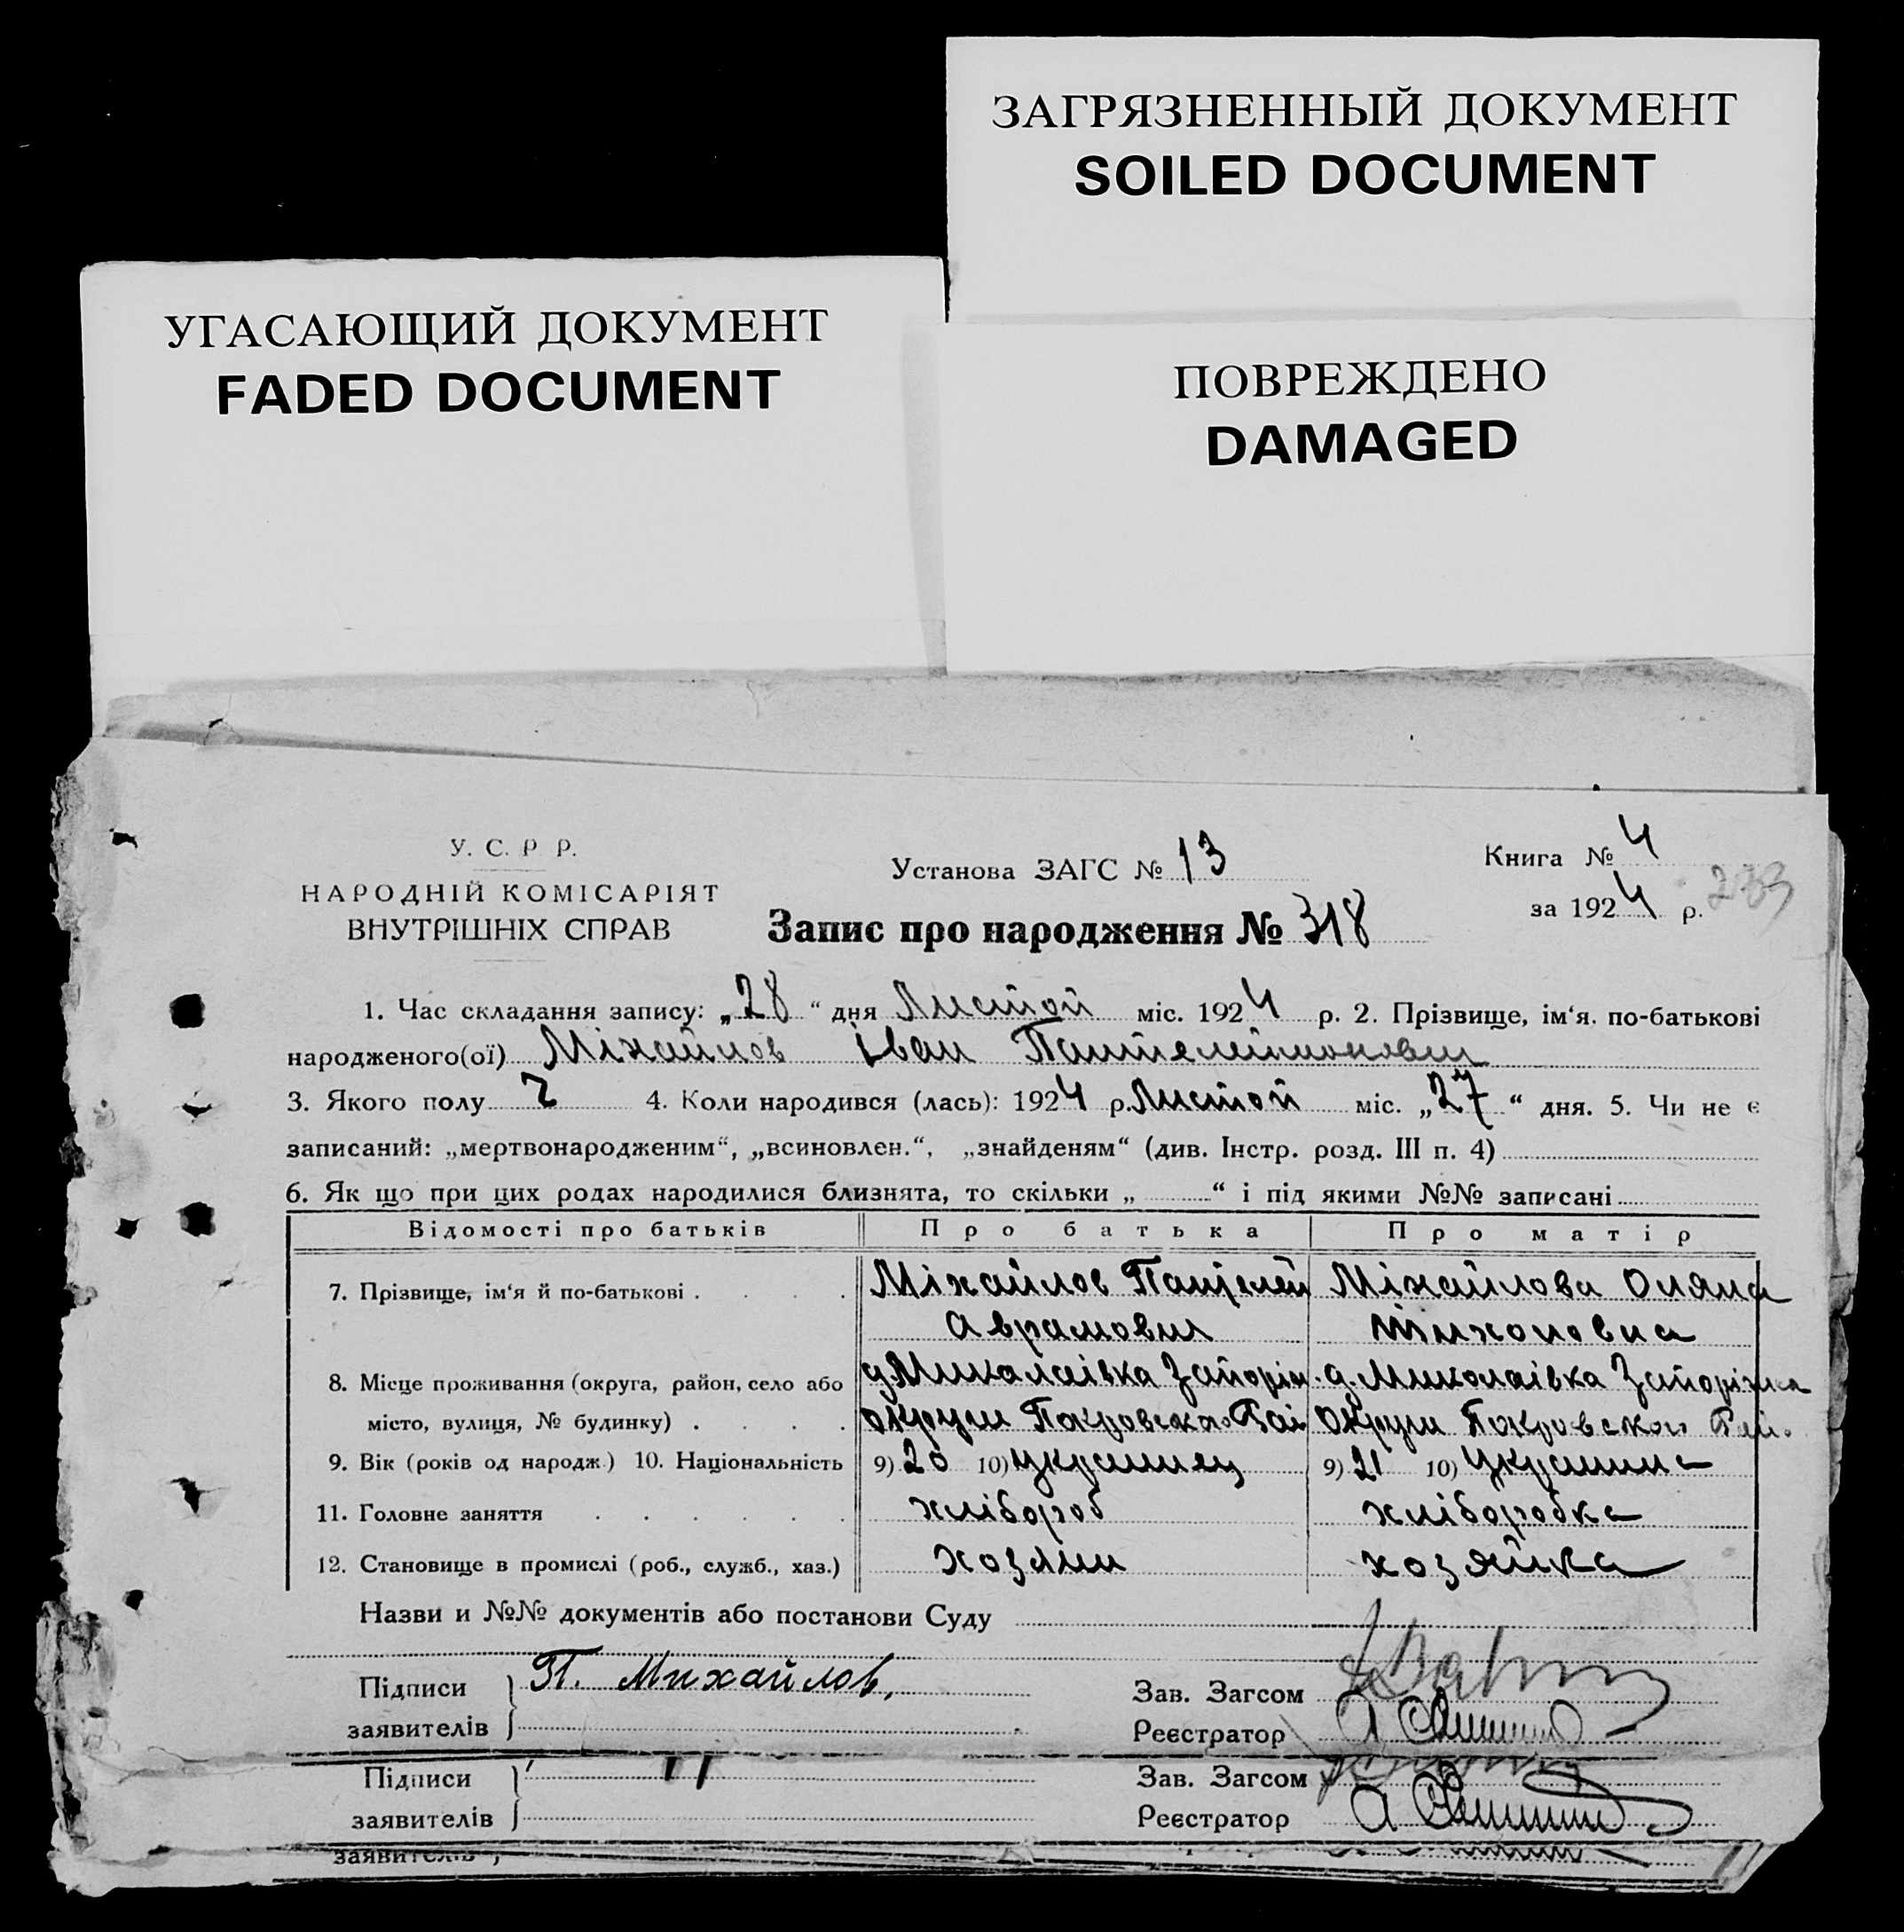 ЗАГРЯЗНЕННЫЙ ДОКУМЕНТ
SOILED DOCUMENT
УГАСАЮЩИЙ ДОКУМЕНТ
FADED DOCUMENT
ПОВРЕЖДЕНО
DAMAGED
У. С. Р Р.
НАРОДНІЙ КОМІСАРІЯТ
ВНУТРІШНІХ СПРАВ
Установа ЗАГС № 13
Запис про народження № 318
Книга № 4
за 1924 р.
1. Час складання запису: „28“ дня Листоп міс. 1924 р. 2. Прізвище, ім‘я. по-батькові
народженого(ої) Міхайлов Іван Пантелеймонович
3. Якого полу 2 4. Коли народився (лась): 1924 р. Листоп міс. „27“ дня. 5. Чи не є
записаний: „мертвонародженим“, „всиновлен.“, „знайденям“ (див. Інстр. розд. III п. 4)
6. Як що при цих родах народилися близнята, то скільки „ “ і під якими №№ записані
Відомості про батьків Про батька Про матір
7. Прізвище, ім‘я й по-батькові Міхайлов Пантелей Міхайлова Оляна
Аврамович Тихоновна
8. Місце проживання (округа, район, село або д. Миколаівка Запоріж. д. Миколаівка Запоріжка
місто, вулиця, № будинку) округи Покровсько Рай округи Покровсько Рай.
9. Вік (років од народж.) 10. Національність 9) 20 10) украинец 9) 21 10) Украинка
11. Головне заняття хлібороб хліборобка
12. Становище в промислі (роб., служб., хаз.) хозяин хозяйка
Назви и №№ документів або постанови Суду
Підписи П. Михайлов. Зав. Загсом
заявителів Реєстратор
Підписи Зав. Загсом
заявителів Реєстратор
заявителів